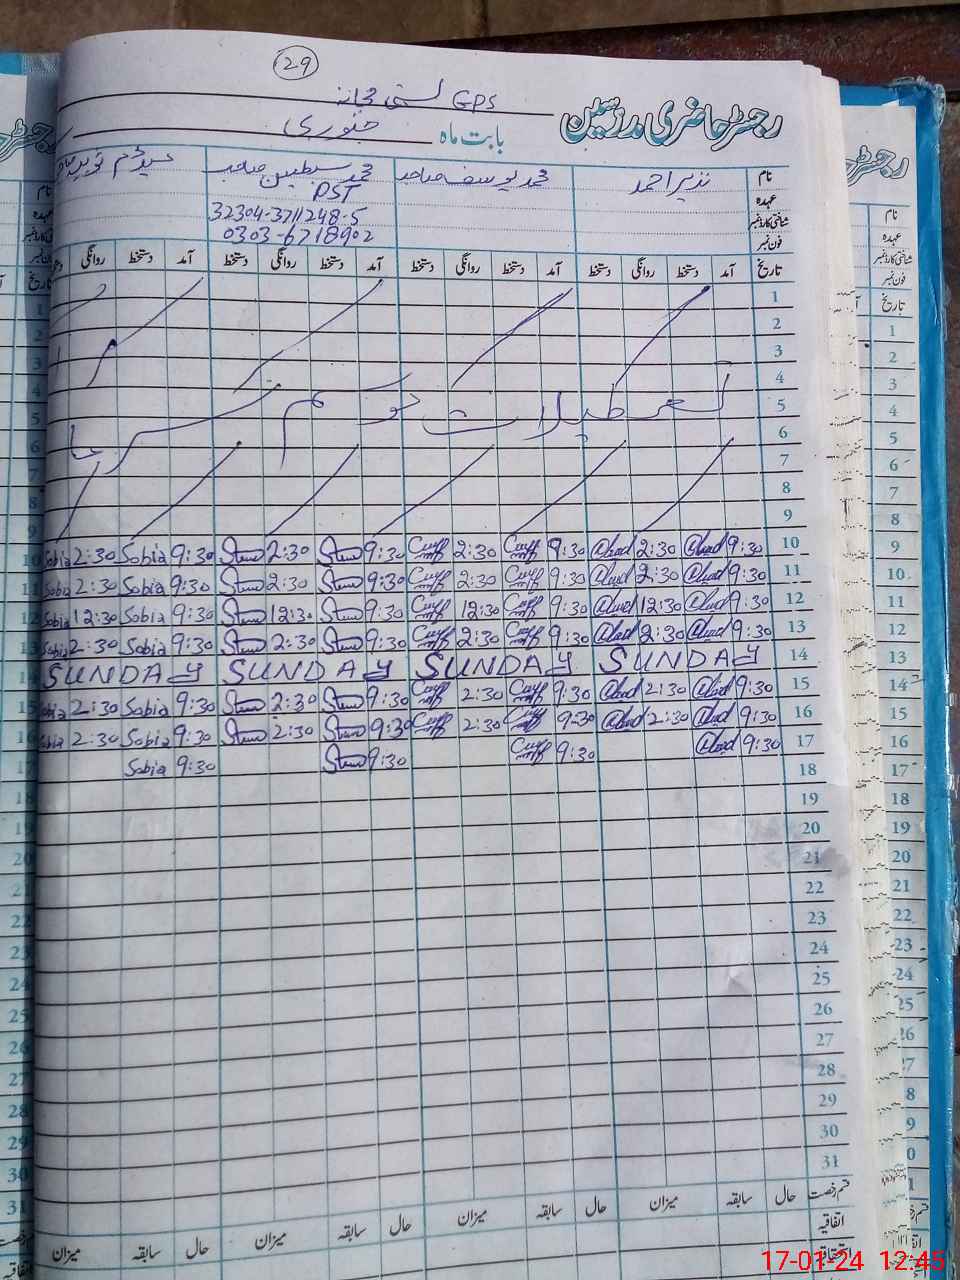 29
رجسٹر حاضری مدرسین
GPS بستی مجانہ
بابت ماہ جنوری
نام نذیر احمد محمد یوسف صاحب محمد سبطین صاحب
عہدہ PST
شناختی کارڈ نمبر 32304-3711248-5
فون نمبر 0303-6718902
تاریخ آمد دستخط روانگی دستخط آمد دستخط روانگی دستخط آمد دستخط روانگی دستخط آمد دستخط روانگی
1
2
3
4
5 تعطیلات موسم سرما
6
7
8
9
10 9:30 2:30 9:30 2:30 9:30 2:30 9:30 Sobia 2:30 Sobia
11 9:30 2:30 9:30 2:30 9:30 2:30 9:30 Sobia 2:30 Sobia
12 9:30 12:30 9:30 12:30 9:30 12:30 9:30 Sobia 12:30 Sobia
13 9:30 2:30 9:30 2:30 9:30 2:30 9:30 Sobia 2:30 Sobia
14 SUNDAY SUNDAY SUNDAY SUNDAY
15 9:30 2:30 9:30 2:30 9:30 2:30 9:30 Sobia 2:30
16 9:30 2:30 9:30 2:30 9:30 2:30 9:30 Sobia 2:30
17 9:30 9:30 9:30 9:30 Sobia
18
19
20
21
22
23
24
25
26
27
28
29
30
31
قسم رخصت حال سابقہ میزان حال سابقہ میزان حال سابقہ میزان حال سابقہ میزان
اتفاقیہ
استحقاقیہ
17-01-24 12:45